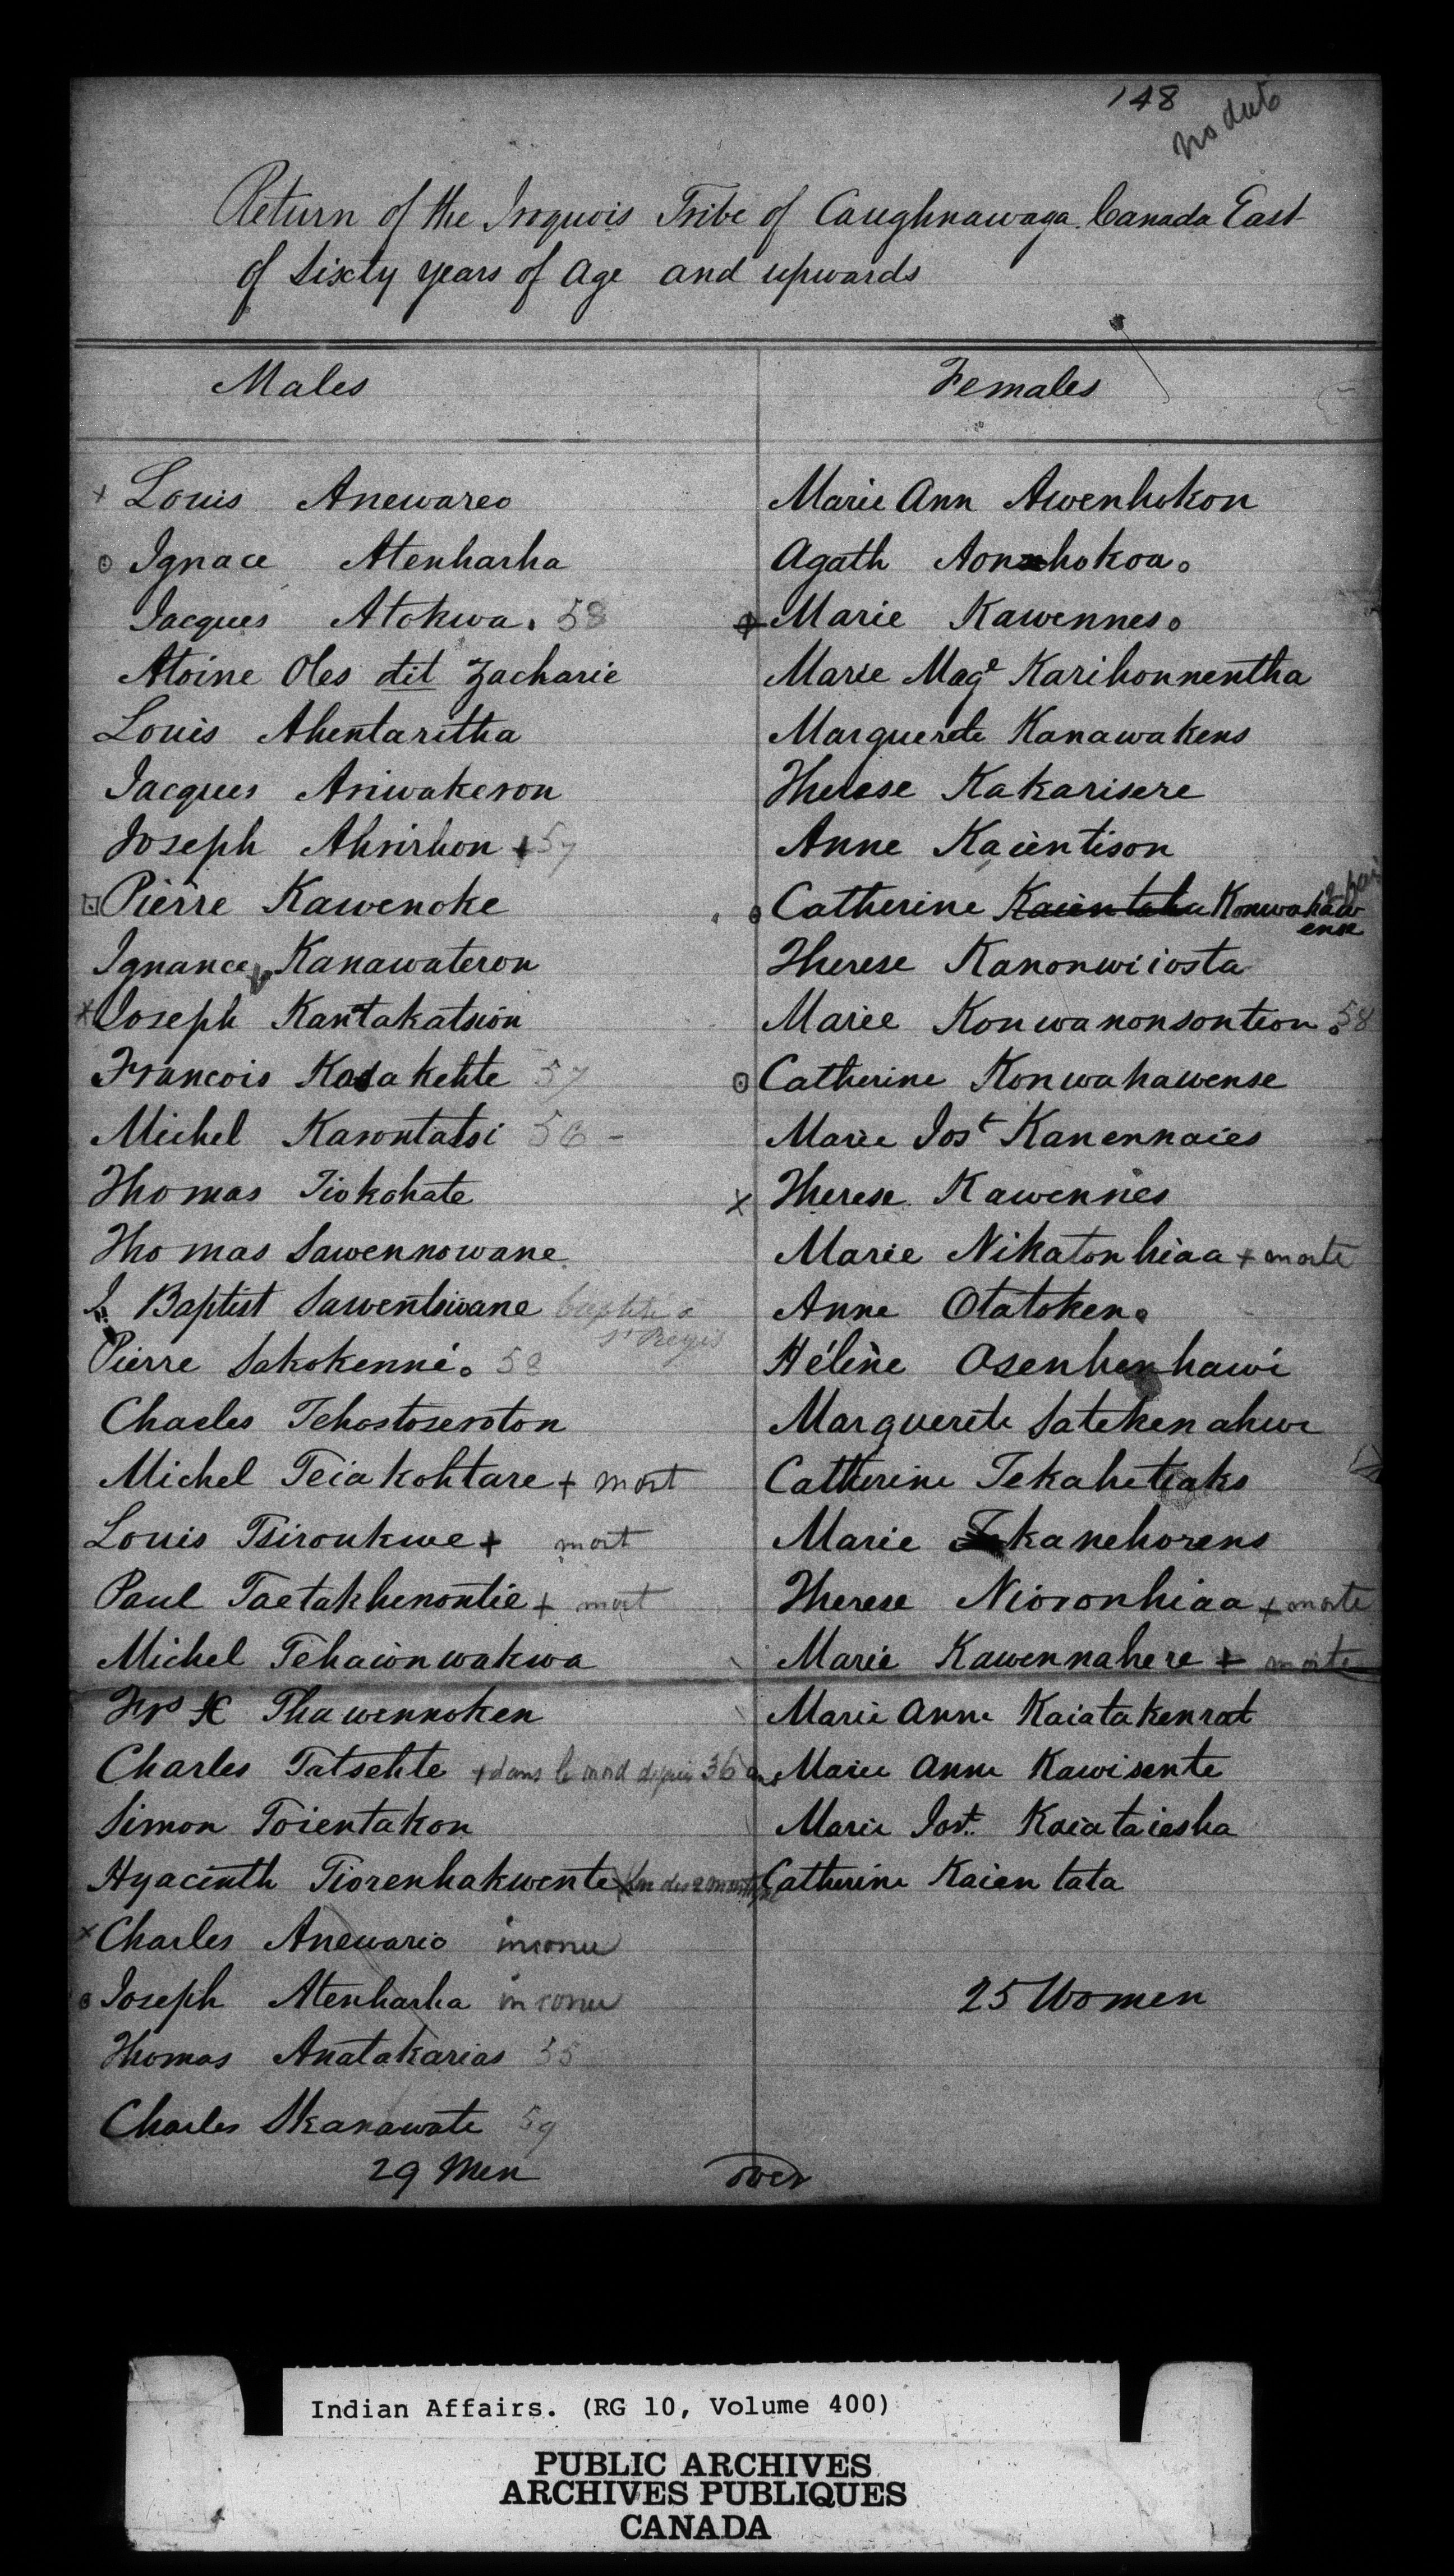 148
no date
Return of the Iroquois Tribe of Caughnawaga. Canada East
of Sixty years of Age and upwards
Males
Females
+ Louis Anewareo
Marie Ann Awenhokon
Ignace Atenharha
Agath Aonhokoa
Jacques Atokwa. 58
Marie Kawennes
Atoine Oles dit Zacharie
Marie Mag^e Karihonnentha
Louis Ahentaritha
Marguerete Kanawakens
Jacques Ariwakeron
Therese Kakarisere
Joseph Ahrirhon + 57
Anne Kaientison
Pierre Kawenoke
Catherine Kaientaha Konwahaw
ense
Ignance Kanawateron
Therese Kanonwiiosta
x Joseph Kantakatsion
Marie Konwanonsontion 58
Francois Kasakehte 57
Catherine Konwahawense
Michel Karontatsi 56 -
Marie Jos^t Kanennaies
Thomas Tiokohate
x Therese Kawennies
Thomas Sawennowane
Marie Nikatonhiaa + morte
J. Baptist Sawentsiwane baptisé à
St Regis
Anne Otatoken
Pierre Sakokenné. 58
Hélène Osenhenhawi
Charles Tehostoseroton
Marguerite Satekenahwe
Michel Teiakohtare + mort
Catherine Tekahetiaks
Louis Tsironkwe + mort
Marie Tekanehorens
Paul Taetakhenontie + mort
Therese Nioronhiaa + morte
Michel Tehaionwakwa
Marie Kawennahere + morte
Frs X Thawennoken
Marie Anne Kaiatakenrat
Charles Tatsehte + dans le nord depuis 36 ans
Marie Anne Kawisente
Simon Toientakon
Marie Jost. Kaiataiesha
Hyacinth Tiorenhakwente
Catherine Kaientata
x Charles Anewario inconu
Joseph Atenharha inconu
25 Women
Thomas Anatakarias 55
Charles Skanawate 59
29 Men
over
Indian Affairs. (RG 10, Volume 400)
PUBLIC ARCHIVES
ARCHIVES PUBLIQUES
CANADA